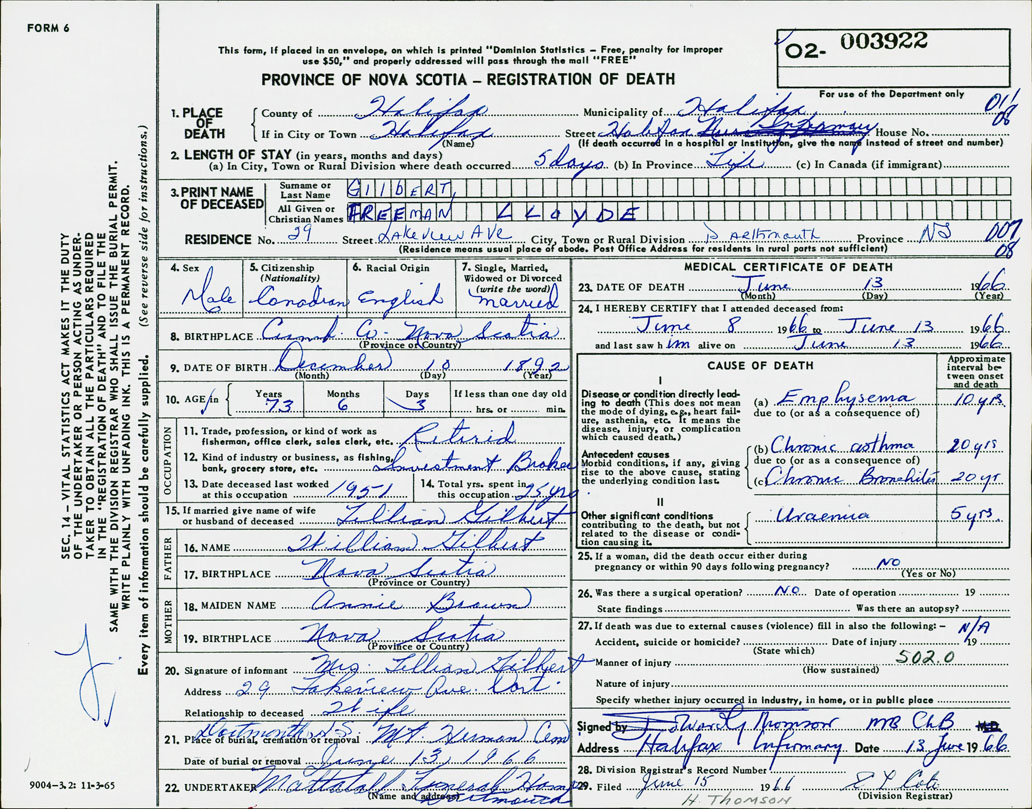 FORM 6
This form, if placed in an envelope, on which is printed "Dominion Statistics – Free, penalty for improper
use $50," and properly addressed will pass through the mail "FREE"
PROVINCE OF NOVA SCOTIA – REGISTRATION OF DEATH
O2- 003922
For use of the Department only
011
08
1. PLACE OF DEATH
County of Halifax Municipality of Halifax
If in City or Town Halifax Street Halifax Infirmary House No.
(Name) (If death occurred in a hospital or institution, give the name instead of street and number)
2. LENGTH OF STAY (in years, months and days)
(a) In City, Town or Rural Division where death occurred 5 days (b) In Province Life (c) In Canada (if immigrant)
3. PRINT NAME OF DECEASED
Surname or Last Name GILBERT,
All Given or Christian Names FREEMAN LLOYDE
RESIDENCE No. 29 Street Lakeview Ave City, Town or Rural Division Dartmouth Province NS 007
08
(Residence means usual place of abode. Post Office Address for residents in rural parts not sufficient)
4. Sex Male
5. Citizenship (Nationality) Canadian
6. Racial Origin English
7. Single, Married, Widowed or Divorced (write the word) Married
8. BIRTHPLACE Cumb. Co. Nova Scotia
(Province or Country)
9. DATE OF BIRTH December 10 1892
(Month) (Day) (Year)
10. AGE in Years 73 Months 6 Days 3 If less than one day old hrs. or min.
OCCUPATION
11. Trade, profession, or kind of work as fisherman, office clerk, sales clerk, etc. Retired
12. Kind of industry or business, as fishing, bank, grocery store, etc. Investment Broker
13. Date deceased last worked at this occupation 1951
14. Total yrs. spent in this occupation 25 yrs.
15. If married give name of wife or husband of deceased Lillian Gilbert
FATHER
16. NAME William Gilbert
17. BIRTHPLACE Nova Scotia
(Province or Country)
MOTHER
18. MAIDEN NAME Annie Brown
19. BIRTHPLACE Nova Scotia
(Province or Country)
20. Signature of informant Mrs. Lillian Gilbert
Address 29 Lakeview Ave. Dart.
Relationship to deceased Wife
Dartmouth, N.S.
21. Place of burial, cremation or removal Mt. Herman Cem
Date of burial or removal June 13, 1966
22. UNDERTAKER Mattatall Funeral Home
(Name and address) Dartmouth
MEDICAL CERTIFICATE OF DEATH
23. DATE OF DEATH June 13 1966
(Month) (Day) (Year)
24. I HEREBY CERTIFY that I attended deceased from:
June 8 1966 to June 13 1966
and last saw him alive on June 13 1966
CAUSE OF DEATH
Approximate interval between onset and death
I
Disease or condition directly leading to death (This does not mean the mode of dying, e.g., heart failure, asthenia, etc. It means the disease, injury, or complication which caused death.)
(a) Emphysema 10 yrs.
due to (or as a consequence of)
Antecedent causes
Morbid conditions, if any, giving rise to the above cause, stating the underlying condition last.
(b) Chronic asthma 20 yrs
due to (or as a consequence of)
(c) Chronic Bronchitis 20 yr.
II
Other significant conditions
contributing to the death, but not related to the disease or condition causing it.
Uraemia 5 yrs.
25. If a woman, did the death occur either during
pregnancy or within 90 days following pregnancy? NO
(Yes or No)
26. Was there a surgical operation? NO Date of operation 19
State findings Was there an autopsy?
27. If death was due to external causes (violence) fill in also the following: – N/A
Accident, suicide or homicide? Date of injury 19
(State which)
502.0
Manner of injury
(How sustained)
Nature of injury
Specify whether injury occurred in industry, in home, or in public place
Signed by Edward G Thomson MB ChB M.D.
Address Halifax Infirmary Date 13 June 1966
28. Division Registrar's Record Number
29. Filed June 15 1966
(Division Registrar)
H. THOMSON
SEC. 14 – VITAL STATISTICS ACT MAKES IT THE DUTY
OF THE UNDERTAKER OR PERSON ACTING AS UNDER-
TAKER TO OBTAIN ALL THE PARTICULARS REQUIRED
IN THE "REGISTRATION OF DEATH" AND TO FILE THE
SAME WITH THE DIVISION REGISTRAR WHO SHALL ISSUE THE BURIAL PERMIT.
WRITE PLAINLY WITH UNFADING INK. THIS IS A PERMANENT RECORD.
Every item of information should be carefully supplied. (See reverse side for instructions.)
9004–3.2: 11-3-65